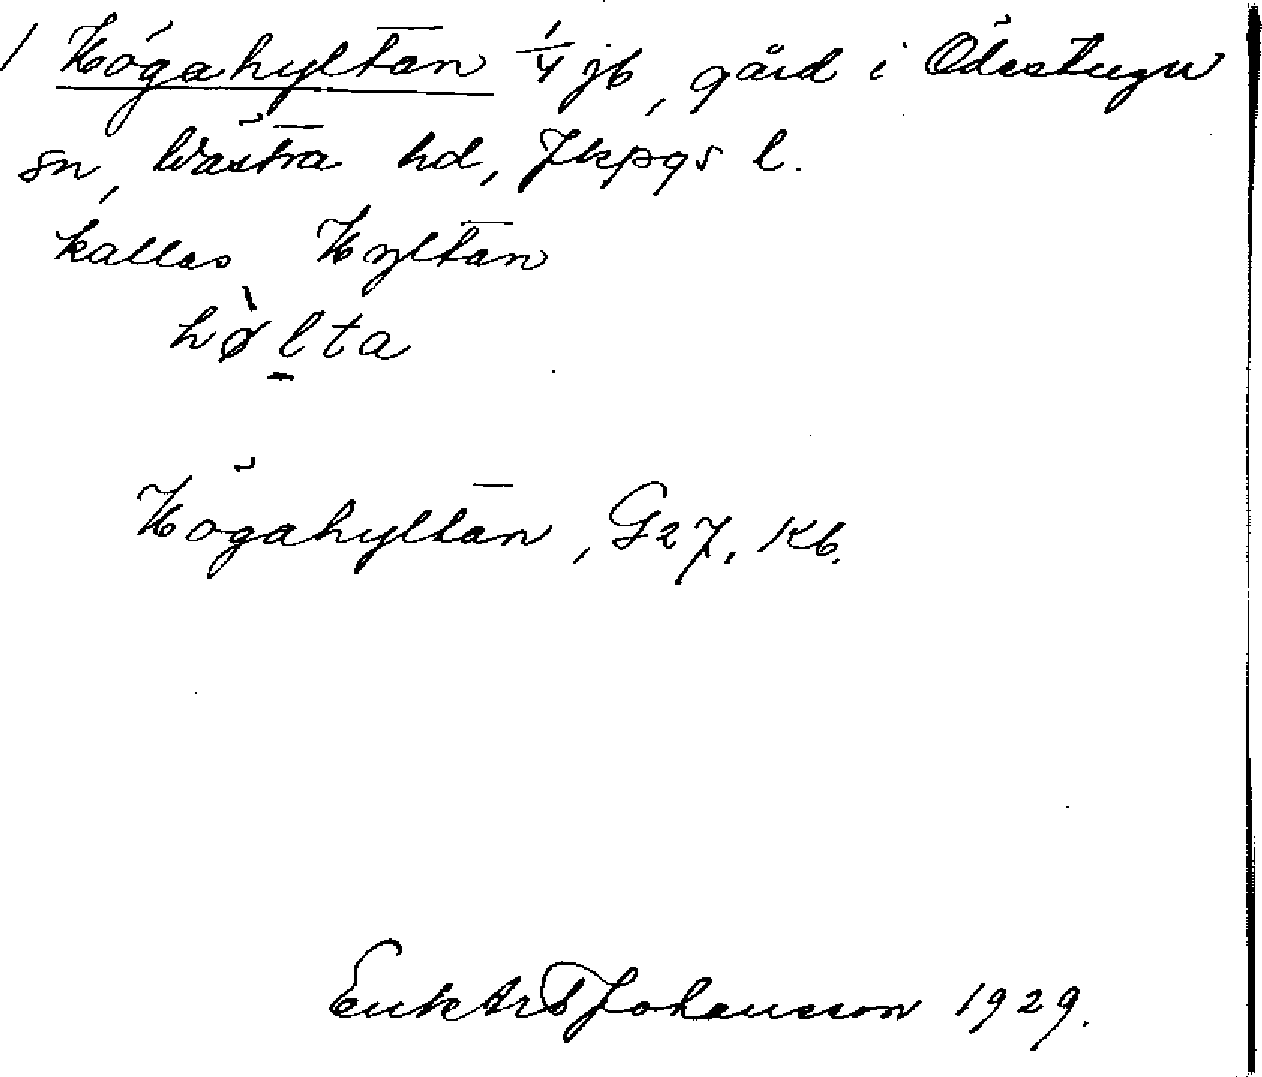 1 Högahyltan 1/4 jb, gård i Ödestugu
sn, Västra hd, Jkpgs l.
kallas Hyltan
hø̀l̠ta
Högahyltan, G27, Kb.
Johansson 1929.